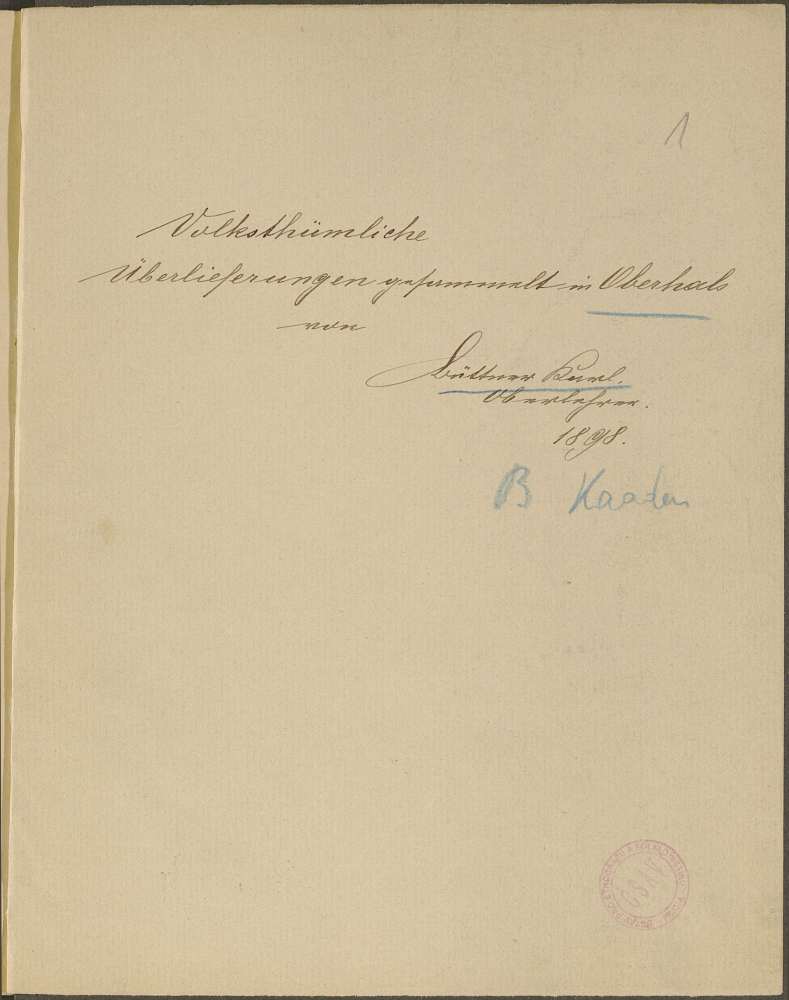 1
Volksthümliche
Überlieferungen gesammelt in Oberhals
von
Büttner Karl.
Oberlehrer.
1898.
B Kaaden
ČSAV